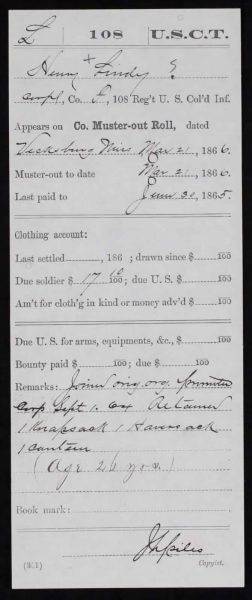 L | 108 | U.S.C.T.
Henry + Lindy
Corpl, Co. F, 108 Reg't U. S. Col'd Inf.
Appears on Co. Muster-out Roll, dated
Vicksburg Miss Mar 21, 1866.
Muster-out to date Mar 21, 1866.
Last paid to June 30, 1865.
Clothing account:
Last settled, 186 ; drawn since $ 100
Due soldier $ 17 10/100; due U. S. $ 100
Am't for cloth'g in kind or money adv'd $ 100
Due U. S. for arms, equipments, &c., $ 100
Bounty paid $ 100; due $ 100
Remarks: Joined orig. org. promoted
Corp Sept 1. 64 Retained
1 Knapsack 1 Haversack
1 canteen
(Age 26 yrs.)
Book mark:
(31)
Copyist.